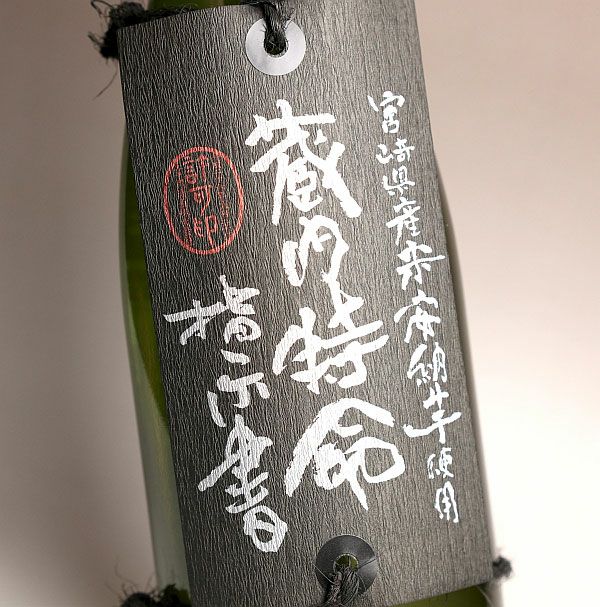 宮崎県産栄安納芋使用
蔵内特命
指示書
許可印